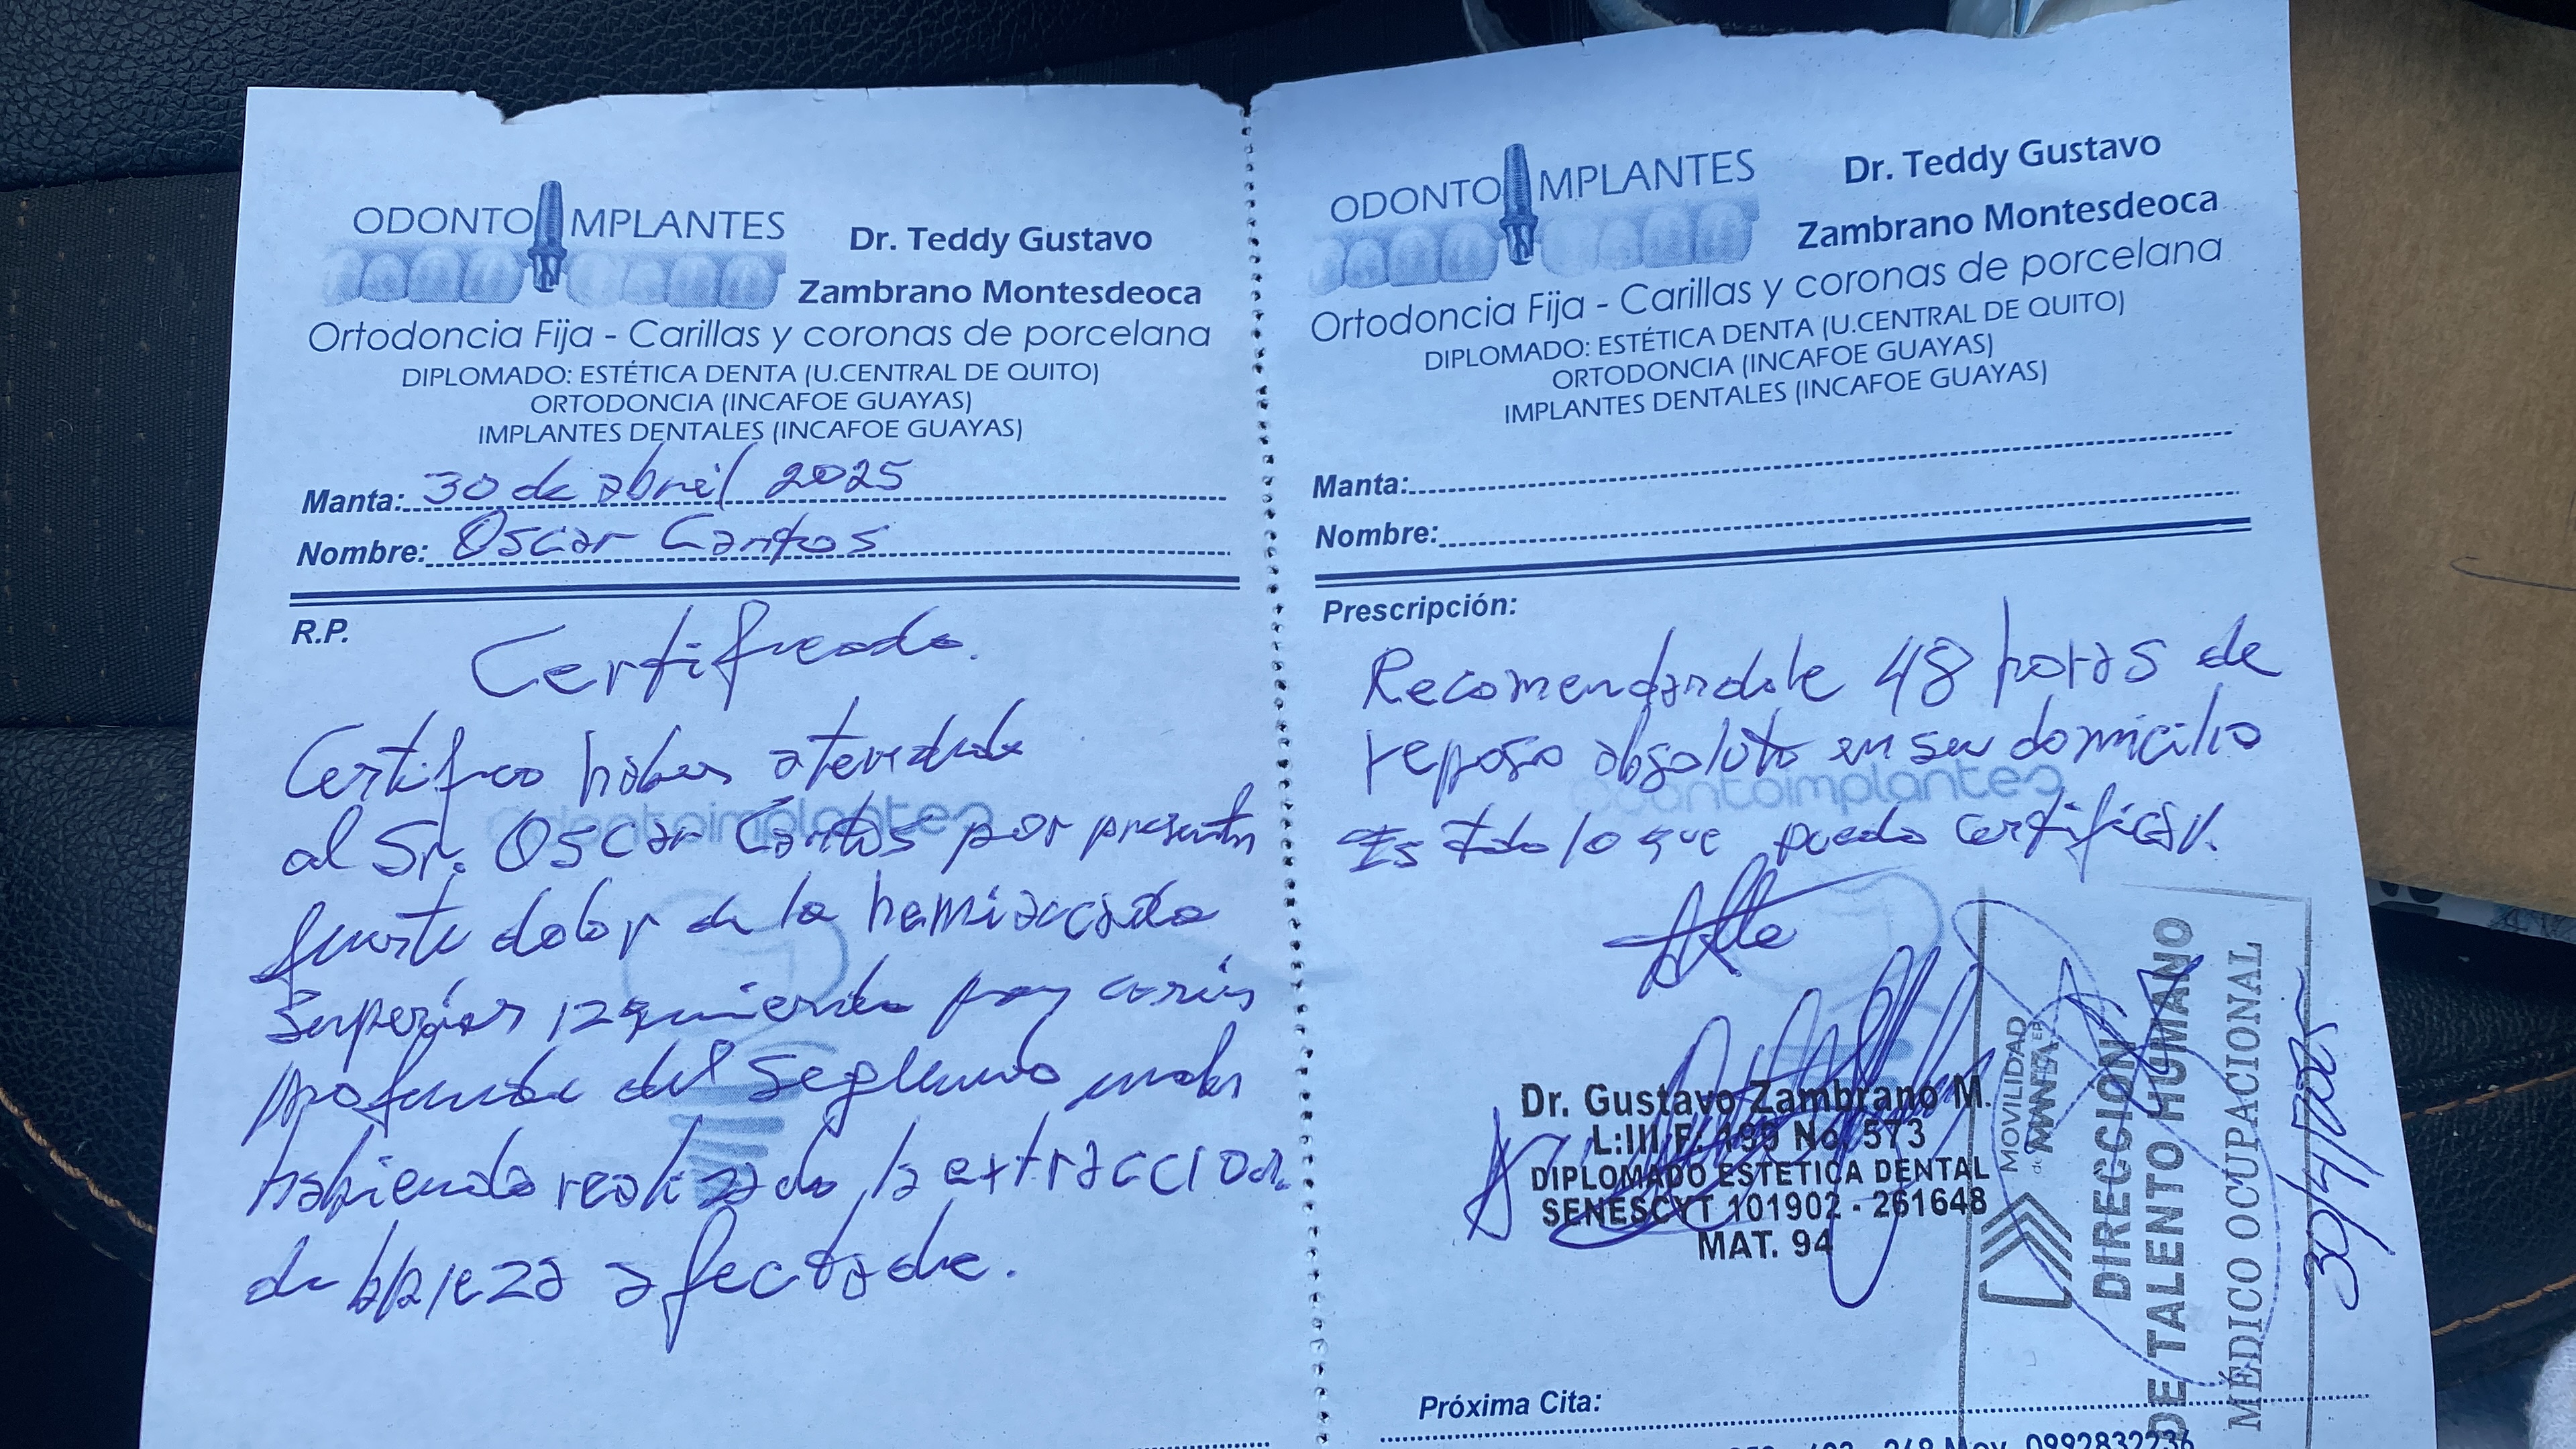 ODONTO IMPLANTES
Dr. Teddy Gustavo
Zambrano Montesdeoca
Ortodoncia Fija - Carillas y coronas de porcelana
DIPLOMADO: ESTÉTICA DENTA (U.CENTRAL DE QUITO)
ORTODONCIA (INCAFOE GUAYAS)
IMPLANTES DENTALES (INCAFOE GUAYAS)
Manta: 30 de abril 2025
Nombre: Oscar Cantos
R.P.
Certificado.
Certifico haber atendido
al Sr. Oscar Cantos por presentar
fuerte dolor de la hemiarcada
Superior izquierda por caries
profunda del Segundo molar
habiendo realizado la extraccion
de la pieza afectada.
ODONTO IMPLANTES
Dr. Teddy Gustavo
Zambrano Montesdeoca
Ortodoncia Fija - Carillas y coronas de porcelana
DIPLOMADO: ESTÉTICA DENTA (U.CENTRAL DE QUITO)
ORTODONCIA (INCAFOE GUAYAS)
IMPLANTES DENTALES (INCAFOE GUAYAS)
Manta:
Nombre:
Prescripción:
Recomendandole 48 horas de
reposo absoluto en su domicilio
Es todo lo que puedo certificar.
odontoimplantes
Dr. Gustavo Zambrano M.
L:III F:199 No. 573
DIPLOMADO ESTETICA DENTAL
SENESCYT 101902 - 261648
MAT. 94
MOVILIDAD
de MANTA EP
DIRECCIÓN
DE TALENTO HUMANO
MÉDICO OCUPACIONAL
30/4/2025
Próxima Cita: